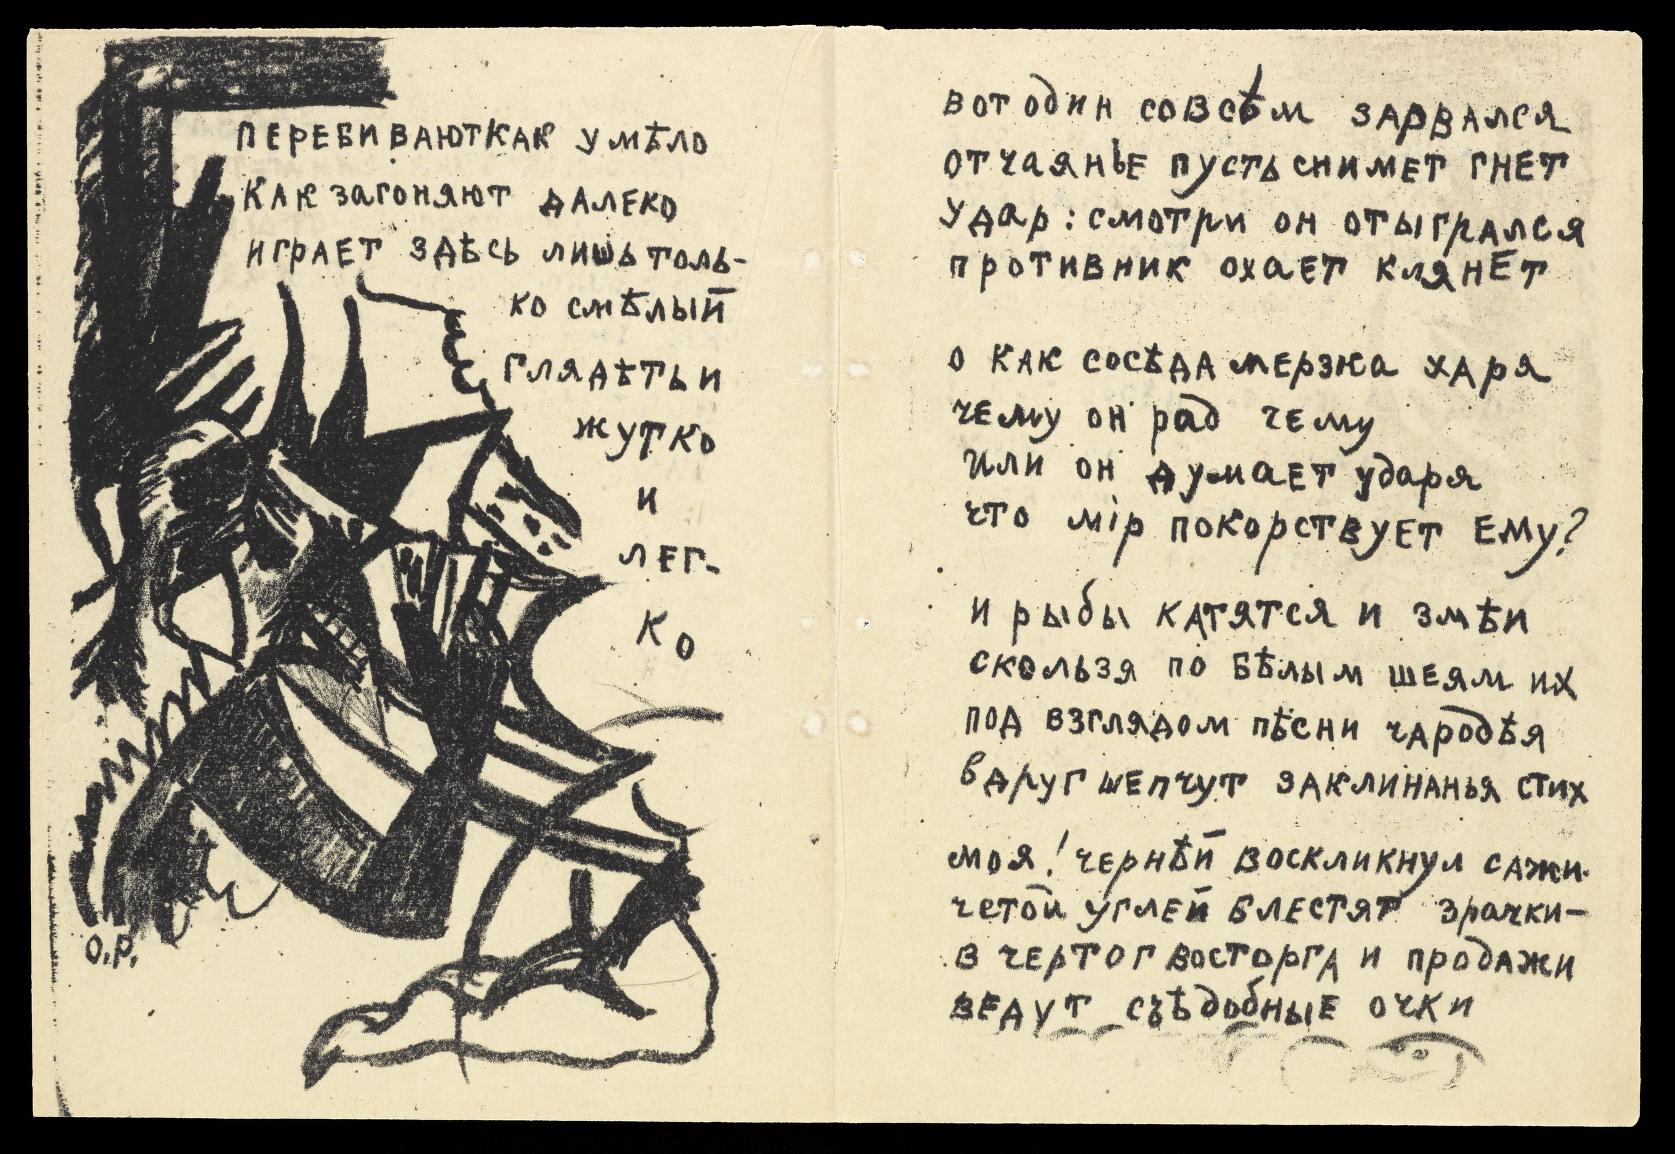 ПЕРЕБИВАЮТ КАК УМѢЛО
КАК ЗАГОНЯЮТ ДАЛЕКО
ИГРАЕТ ЗДѢСЬ ЛИШЬ ТОЛЬ-
КО СМѢЛЫЙ
ГЛЯДѢТЬ И
ЖУТКО
И
ЛЕГ-
КО
О.Р.
ВОТ ОДИН СОВСѢМ ЗАРВАЛСЯ
ОТЧАЯНЬЕ ПУСТЬ СНИМЕТ ГНЕТ
УДАР: СМОТРИ ОН ОТЫГРАЛСЯ
ПРОТИВНИК ОХАЕТ КЛЯНЕТ
О КАК СОСѢДА МЕРЗКА ХАРЯ
ЧЕМУ ОН РАД ЧЕМУ
ИЛИ ОН ДУМАЕТ УДАРЯ
ЧТО МІР ПОКОРСТВУЕТ ЕМУ?
И РЫБЫ КАТЯТСЯ И ЗМѢИ
СКОЛЬЗЯ ПО БѢЛЫМ ШЕЯМ ИХ
ПОД ВЗГЛЯДОМ ПѢСНИ ЧАРОДѢЯ
ВДРУГ ШЕПЧУТ ЗАКЛИНАНЬЯ СТИХ
МОЯ! ЧЕРНѢЙ ВОСКЛИКНУЛ САЖИ
ЧЕТОЙ УГЛЕЙ БЛЕСТЯТ ЗРАЧКИ—
В ЧЕРТОГ ВОСТОРГА И ПРОДАЖИ
ВЕДУТ СЪѢДОБНЫЕ ОЧКИ